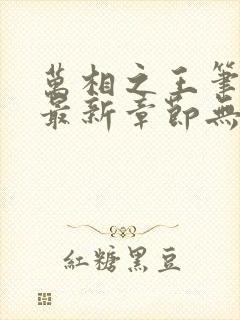 萬相之王筆
最新章節無
紅糖黑豆